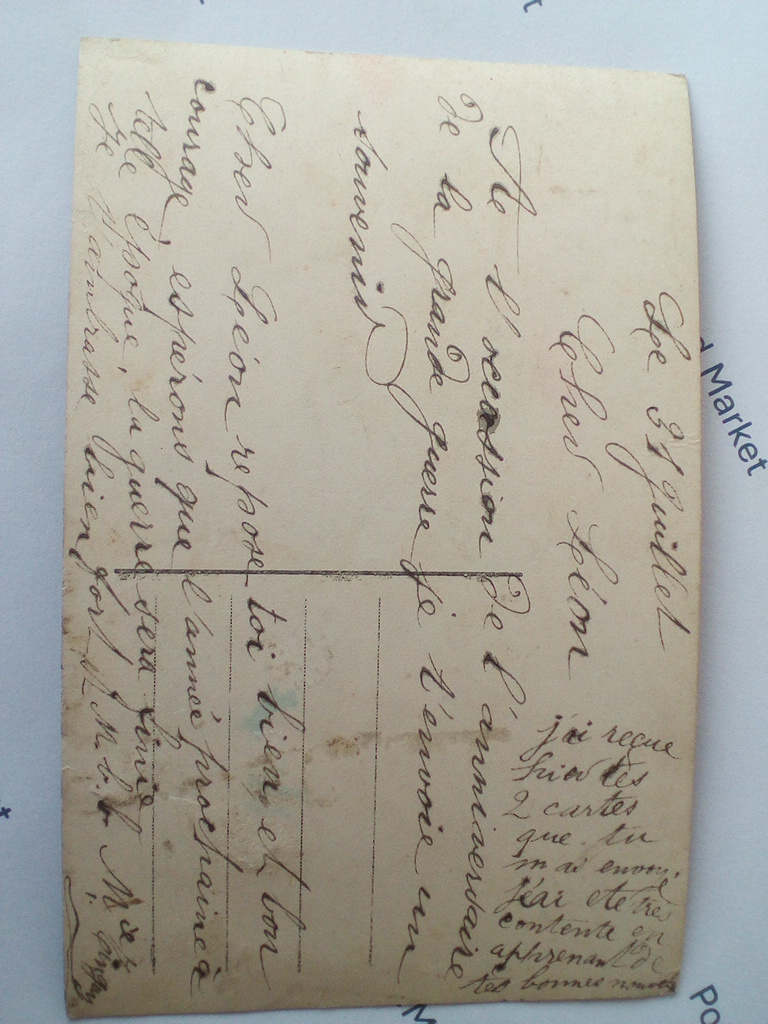 Le 31 Juillet
Cher Léon
A l'occassion de l'anniversaire
de la grande guerre je t'envoie un
souvenir
Cher Léon repose toi bien, et bon
courage, espérons que l'année prochaine à
telle époque, la guerre sera finie
Je t'embrasse bien fort
j'ai reçue
hier tes
2 cartes
que tu
m'ai envoyé
j'ai ete très
contente en
apprenant de
tes bonnes nouvels
d Market
Po
M